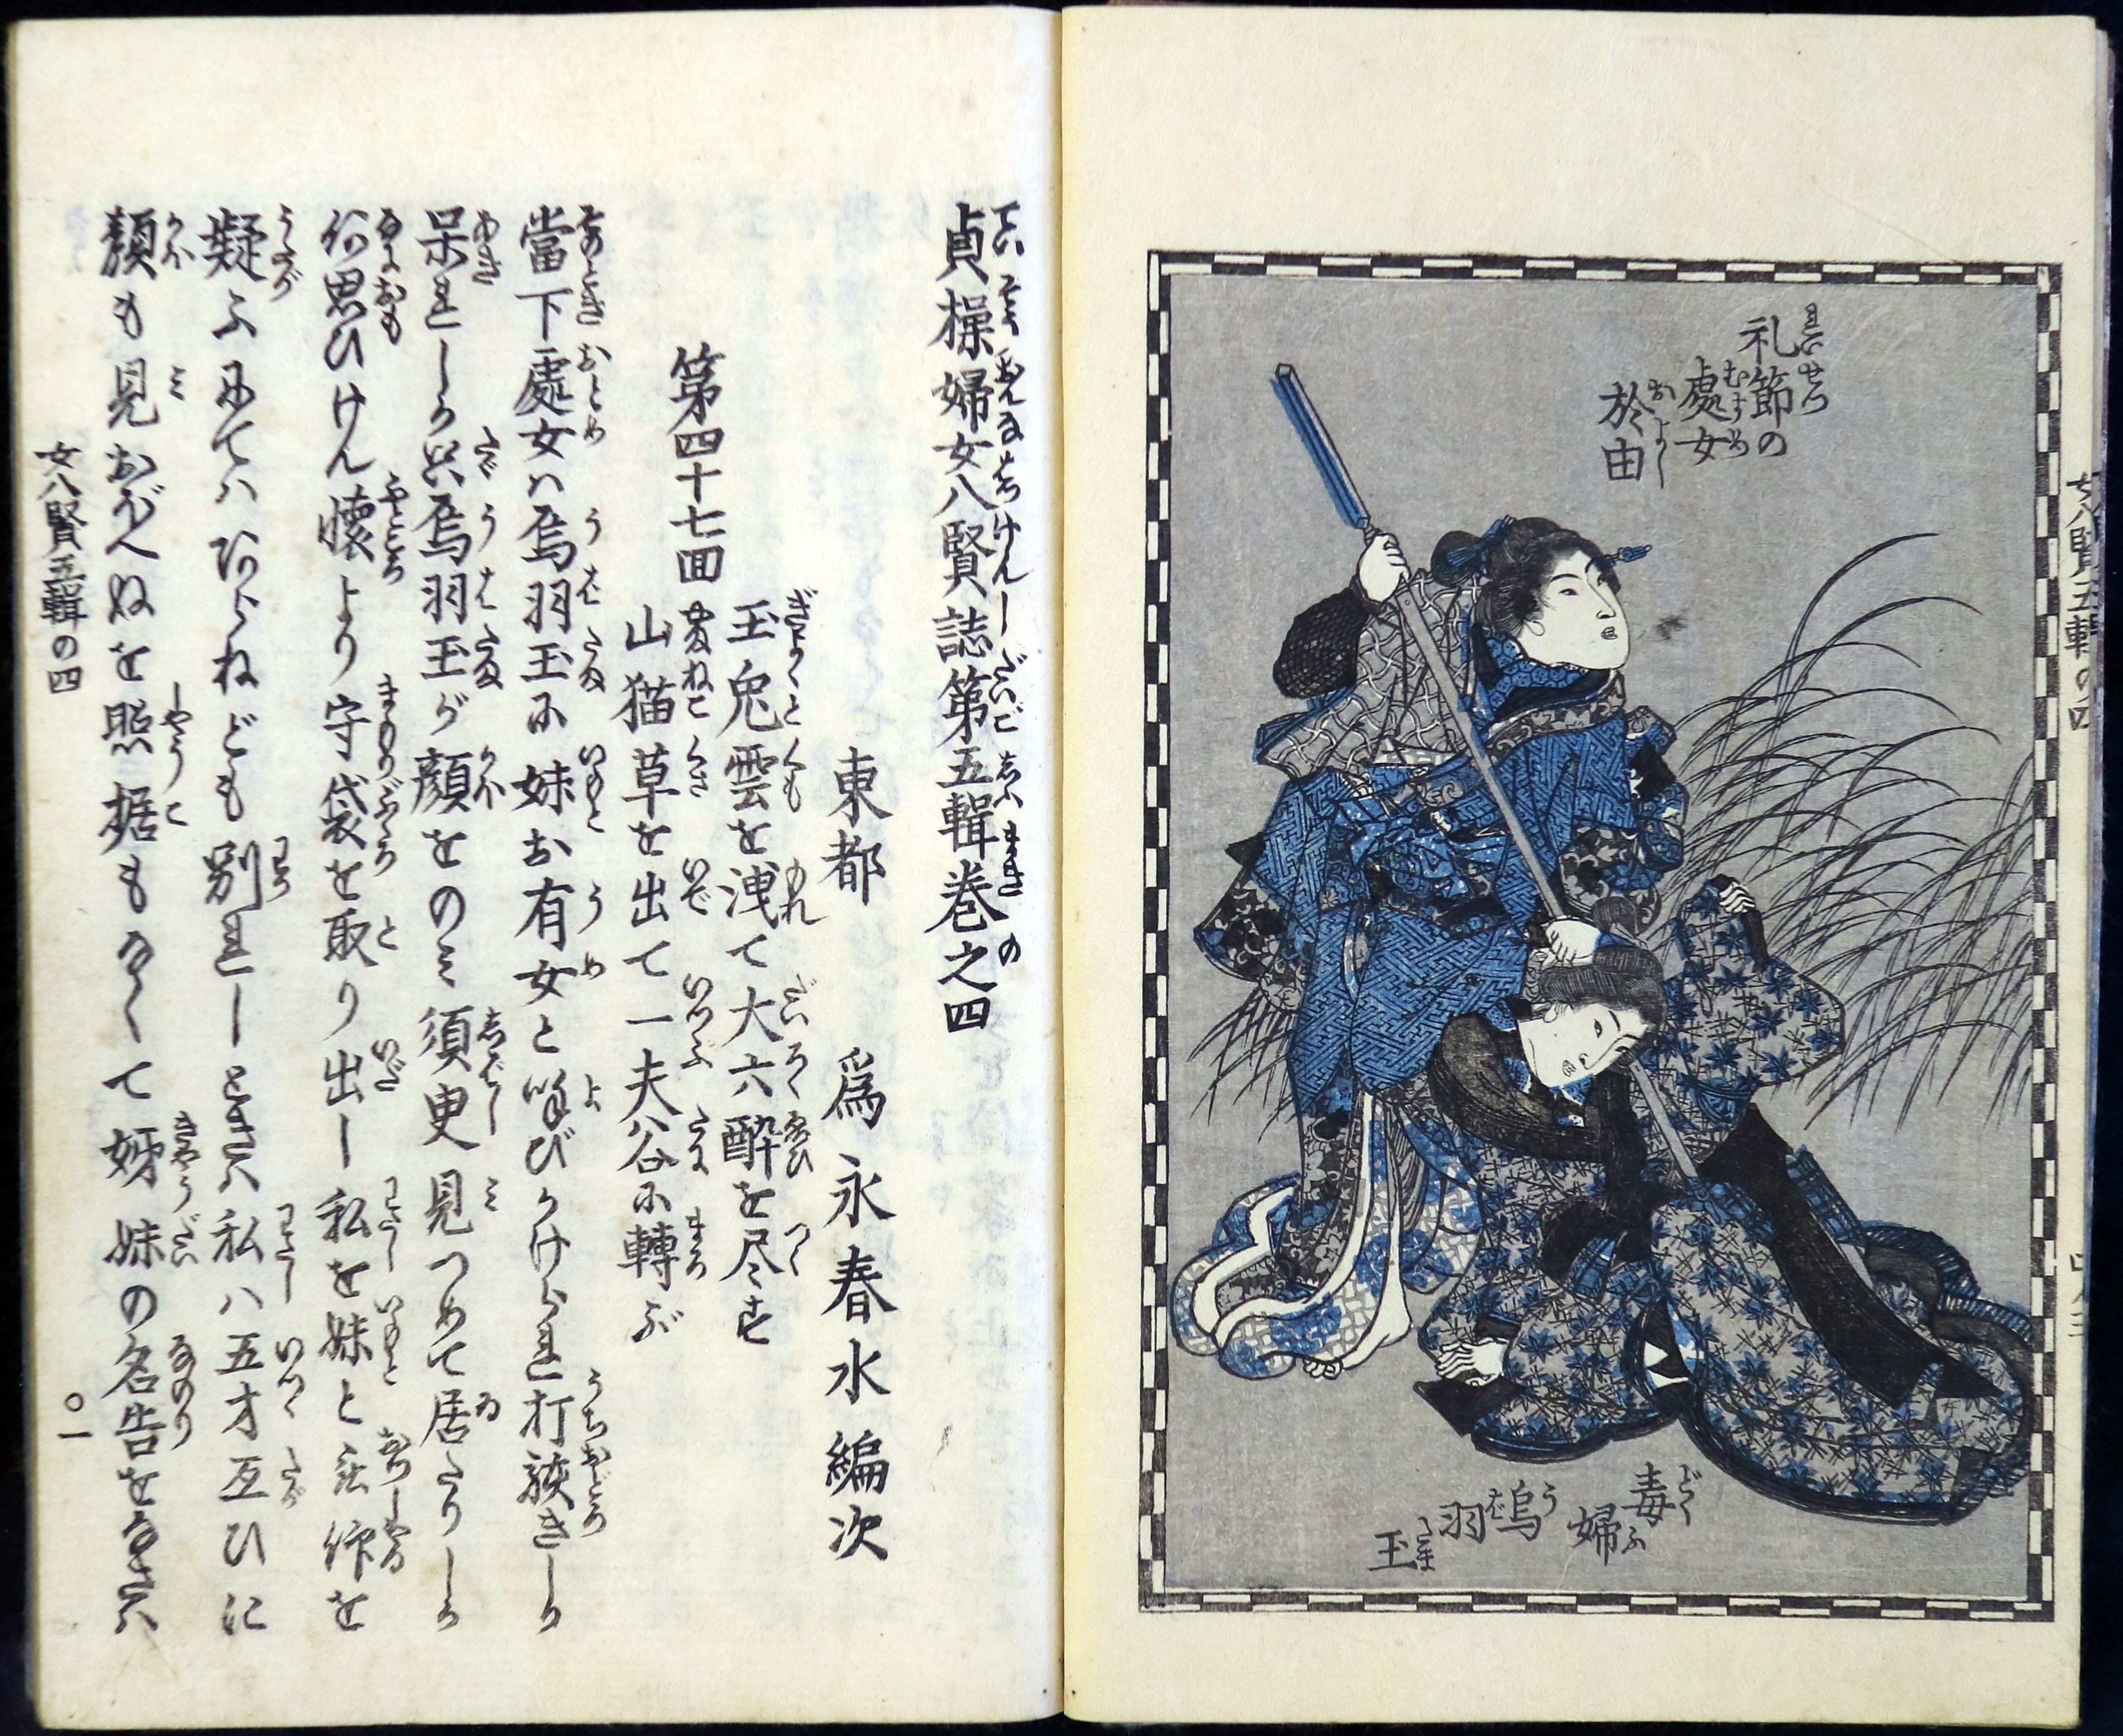 礼節の
處女
於由
毒
婦
烏
羽
玉
女八賢五輯の四
貞操婦女八賢誌第五輯巻之四
東都 爲永春水編次
第四十七回
玉兎雲を洩て大六酔を尽す
山猫草を出て一夫谷に轉ぶ
當下處女ハ烏羽玉に妹お有女と呼びかけられ打驚きしが
呆れしか只烏羽玉が顔をのミ須臾見つめて居たりしが
何思ひけん懐より守袋を取り出し私を妹と
疑ふにてハあらねども別れしときハ私ハ五才互ひに
顔も見おぼへぬを照据もなくて姉妹の名告をなさバ
女八賢五輯の四
〇一